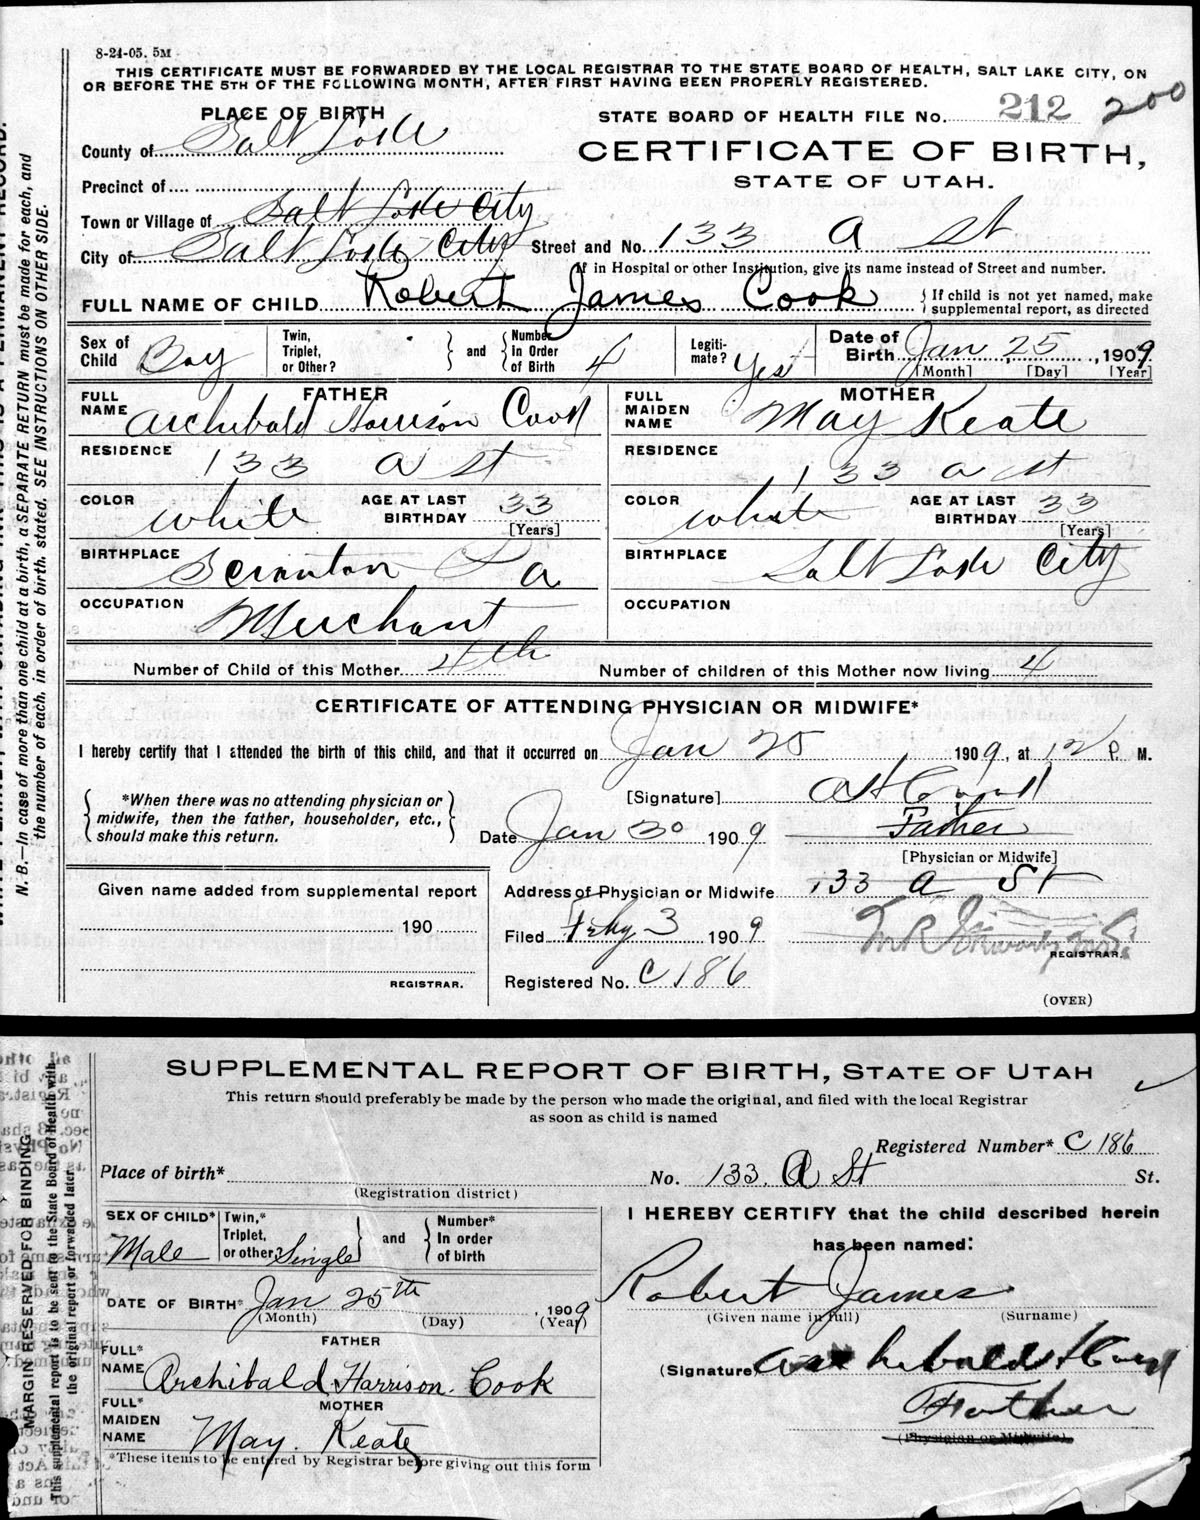 8-24-05. 5M
THIS CERTIFICATE MUST BE FORWARDED BY THE LOCAL REGISTRAR TO THE STATE BOARD OF HEALTH, SALT LAKE CITY, ON
OR BEFORE THE 5TH OF THE FOLLOWING MONTH, AFTER FIRST HAVING BEEN PROPERLY REGISTERED.
PLACE OF BIRTH
STATE BOARD OF HEALTH FILE No. 212 200
County of Salt Lake
CERTIFICATE OF BIRTH,
STATE OF UTAH.
Precinct of
Town or Village of Salt Lake City
City of Salt Lake City Street and No. 133 A St
If in Hospital or other Institution, give its name instead of Street and number.
FULL NAME OF CHILD Robert James Cook { If child is not yet named, make supplemental report, as directed
Sex of Child Boy Twin, Triplet, or Other? } and { Number In Order of Birth 4 Legiti-mate? Yes Date of Birth Jan 25, 1909
[Month] [Day] [Year]
FATHER MOTHER
FULL NAME Archibald Harrison Cook FULL MAIDEN NAME May Keate
RESIDENCE 133 A St RESIDENCE 133 A St
COLOR White AGE AT LAST BIRTHDAY 33 [Years] COLOR White AGE AT LAST BIRTHDAY 33 [Years]
BIRTHPLACE Scranton Pa BIRTHPLACE Salt Lake City
OCCUPATION Merchant OCCUPATION
Number of Child of this Mother 4th Number of children of this Mother now living 4
CERTIFICATE OF ATTENDING PHYSICIAN OR MIDWIFE*
I hereby certify that I attended the birth of this child, and that it occurred on Jan 25 1909, at 12 P. M.
{ *When there was no attending physician or midwife, then the father, householder, etc., should make this return. }
[Signature] A H Cook
Date Jan 30 1909 Father
[Physician or Midwife]
Given name added from supplemental report
Address of Physician or Midwife 133 A St
190
Filed Feby 3 1909
REGISTRAR.
REGISTRAR.
Registered No. C 186
(OVER)
N. B.—In case of more than one child at a birth, a SEPARATE RETURN must be made for each, and
the number of each, in order of birth, stated. SEE INSTRUCTIONS ON OTHER SIDE.
SUPPLEMENTAL REPORT OF BIRTH, STATE OF UTAH
This return should preferably be made by the person who made the original, and filed with the local Registrar
as soon as child is named
Registered Number* C 186
Place of birth* No. 133 A St St.
(Registration district)
SEX OF CHILD* Male Twin,* Triplet, or other? Single } and { Number* In order of birth
I HEREBY CERTIFY that the child described herein
has been named:
DATE OF BIRTH* Jan 25th, 1909
(Month) (Day) (Year)
Robert James
(Given name in full) (Surname)
FATHER
FULL* NAME Archibald Harrison Cook
(Signature Archibald H Cook
Father
(Physician or Midwife)
MOTHER
FULL* MAIDEN NAME May Keate
*These items to be entered by Registrar before giving out this form
MARGIN RESERVED FOR BINDING
This supplemental report is to be sent to the State Board of Health with
the original report or forwarded later.